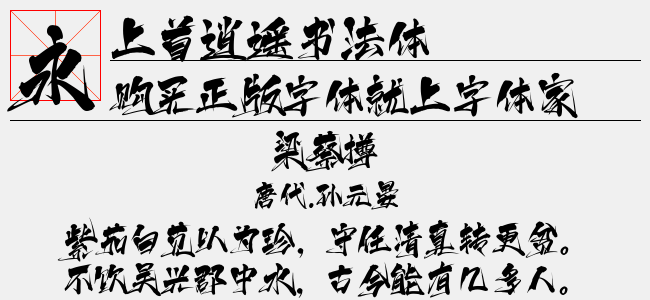 永
上首逍遥书法体
购买正版字体就上字体家
梁蔡撙
唐代.孙元晏
紫茄白苋以为珍，守任清真转更贫。
不饮吴兴郡中水，古今能有几多人。